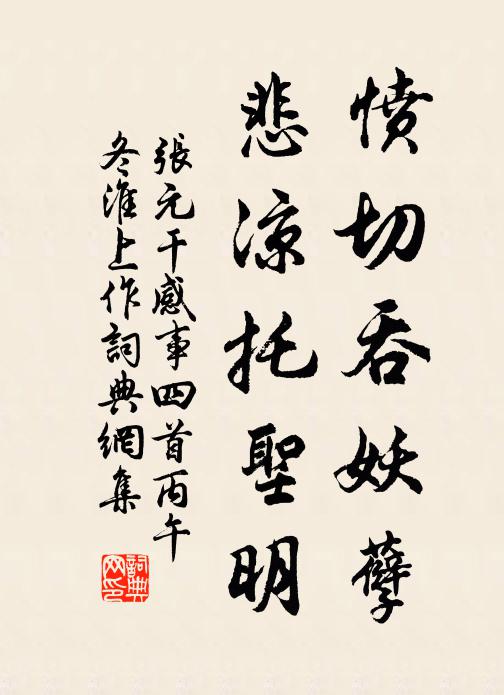 憤切吞妖孽
悲涼托聖明
張元干感事四首丙午
冬淮上作詞典網集
詞典
网印